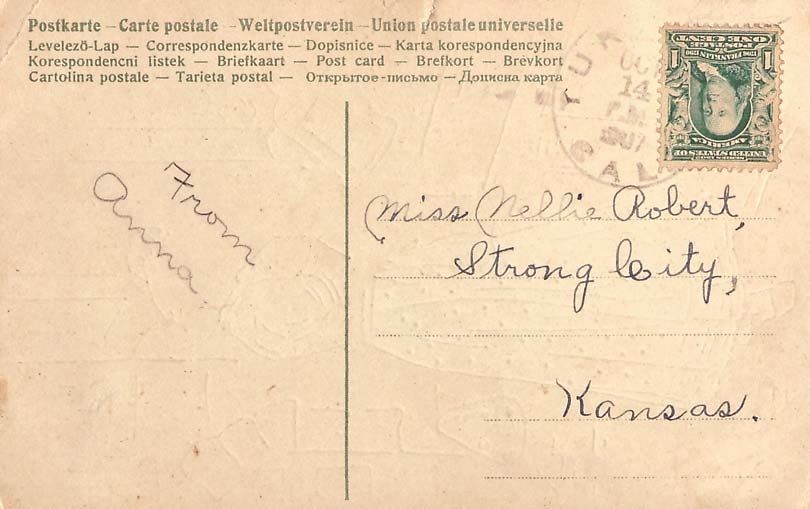 Postkarte – Carte postale – Weltpostverein – Union postale universelle
Levelező-Lap — Correspondenzkarte — Dopisnice — Karta korespondencyjna
Korespondencni listek — Briefkaart — Post card — Brefkort — Brévkort
Cartolina postale — Tarjeta postal — Открытое-письмо — Дописна карта
OCT
14
P.M.
1907
CAL
ONE CENT
1 1
FRANKLIN
UNITED STATES OF
AMERICA
From
Anna.
Miss Nellie Robert,
Strong City,
Kansas.